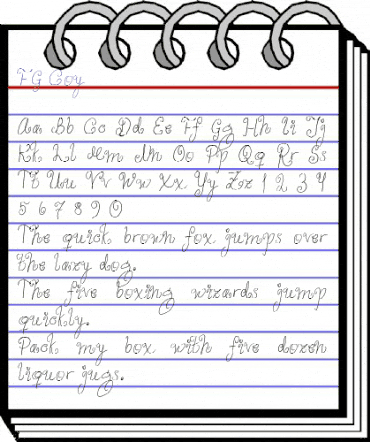 FG Coy
Aa Bb Cc Dd Ee Ff Gg Hh Ii Jj
Kk Ll Mm Nn Oo Pp Qq Rr Ss
Tt Uu Vv Ww Xx Yy Zz 1 2 3 4
5 6 7 8 9 0
The quick brown fox jumps over
the lazy dog.
The five boxing wizards jump
quickly.
Pack my box with five dozen
liquor jugs.